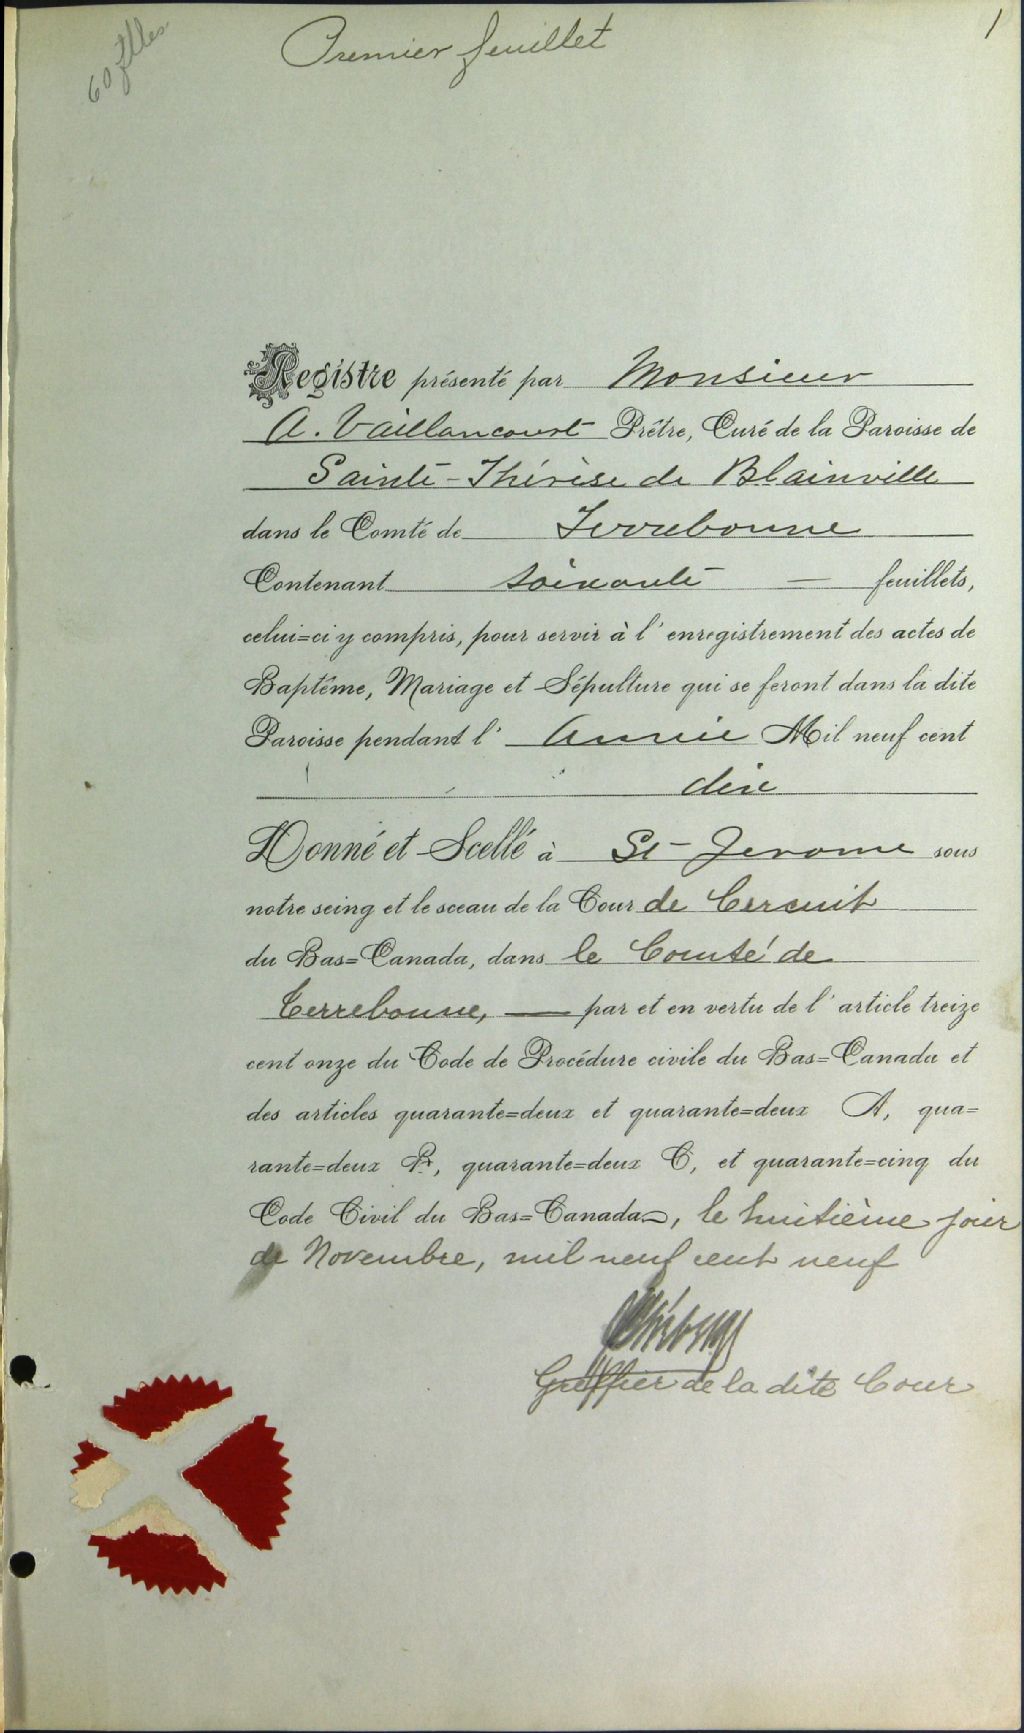 60 flles
Premier feuillet
1
Registre présenté par Monsieur
A. Vaillancourt Prêtre, Curé de la Paroisse de
Sainte-Thérèse de Blainville
dans le Comté de Terrebonne
Contenant soixante — feuillets,
celui=ci y compris, pour servir à l'enregistrement des actes de
Baptême, Mariage et Sépulture qui se feront dans la dite
Paroisse pendant l'Année Mil neuf cent
dix
Donné et Scellé à St-Jerome sous
notre seing et le sceau de la Cour de Circuit
du Bas=Canada, dans le Comté de
Terrebonne, — par et en vertu de l'article treize
cent onze du Code de Procédure civile du Bas=Canada et
des articles quarante=deux et quarante=deux A, qua=
rante=deux B, quarante=deux C, et quarante=cinq du
Code Civil du Bas=Canada, le huitième jour
de Novembre, mil neuf cent neuf
Greffier de la dite Cour